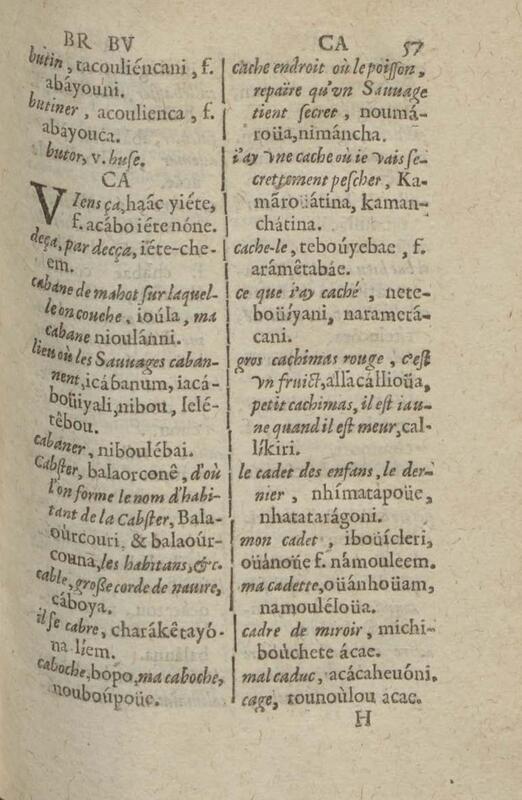 BR BV
butin, tacouliéncani, f.
abáyouni.
butiner, acoulienca, f.
abáyouca.
butor, v. buse.
CA
VIens ça, haác yiéte,
f. acábo iéte nóne.
deça, par decça, iéte-che-
em.
cabane de mahot sur laquel-
le on couche, ioúla, ma
cabane nioulánni.
lieu où les Sauuages caban-
nent, icábanum, iacá-
boüiyali, nibou, Ielé-
têbou.
cabaner, niboulébai.
Cabster, balaorconê, d'où
l'on forme le nom d'habi-
tant de la Cabster, Bala-
oùrcouri, & balaoúr-
couna, les habitans, &c.
cable, grosse corde de nauire,
cáboya.
il se cabre, charákêtayó-
na liem.
caboche, bópo, ma caboche,
nouboúpoüe.
CA 57
cache endroit où le poisson,
repaire qu'vn Sauuage
tient secret, noumá-
roüa, nimáncha.
i'ay vne cache où ie vais se-
crettement pescher, Ka-
mãroüátina, kaman-
chátina.
cache-le, teboúyebae, f.
arámêtabáe.
ce que i'ay caché, nete-
boüíyani, narametá-
cani.
gros cachimas rouge, c'est
vn fruict, allacállioüa,
petit cachimas, il est iau-
ne quand il est meur, cal-
líkiri.
le cadet des enfans, le der-
nier, nhímatapoüe,
nhatatarágoni.
mon cadet, iboüícleri,
oüánoüe f. námouleem.
ma cadette, oüánhoüam,
namouléloüa.
cadre de miroir, michi-
boùchete ácae.
mal caduc, acácaheuóni.
cage, tounoùlou acae.
H